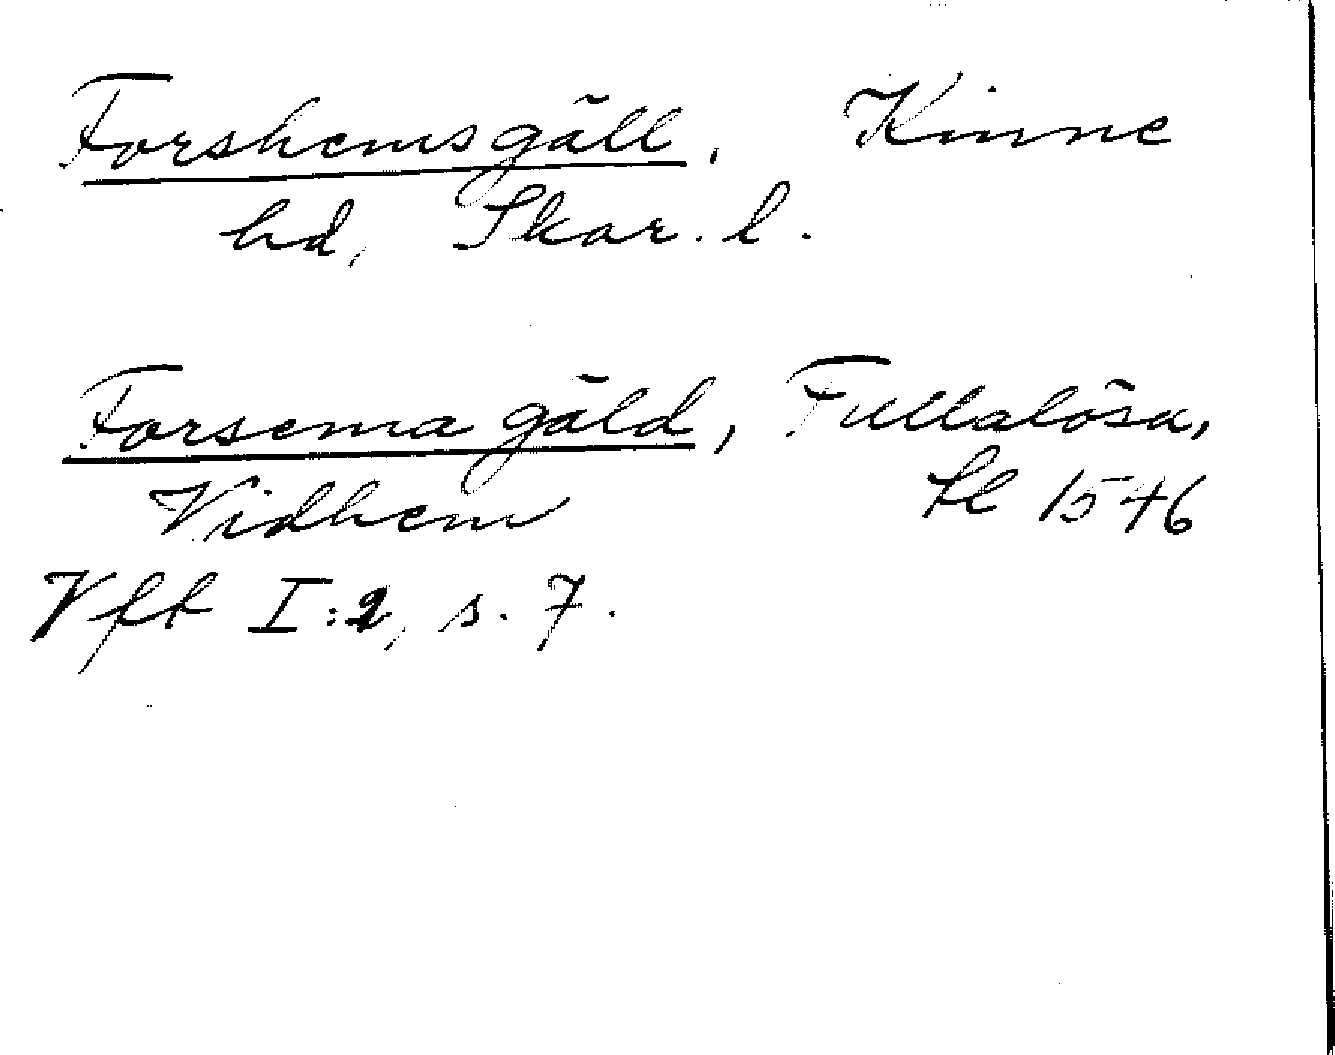 Forshems gäll, Kinne
hd, Skar. l.
Forsema gäld, Fullalösa,
Vidhem fl 1546
Vfk I:2, s. 7.